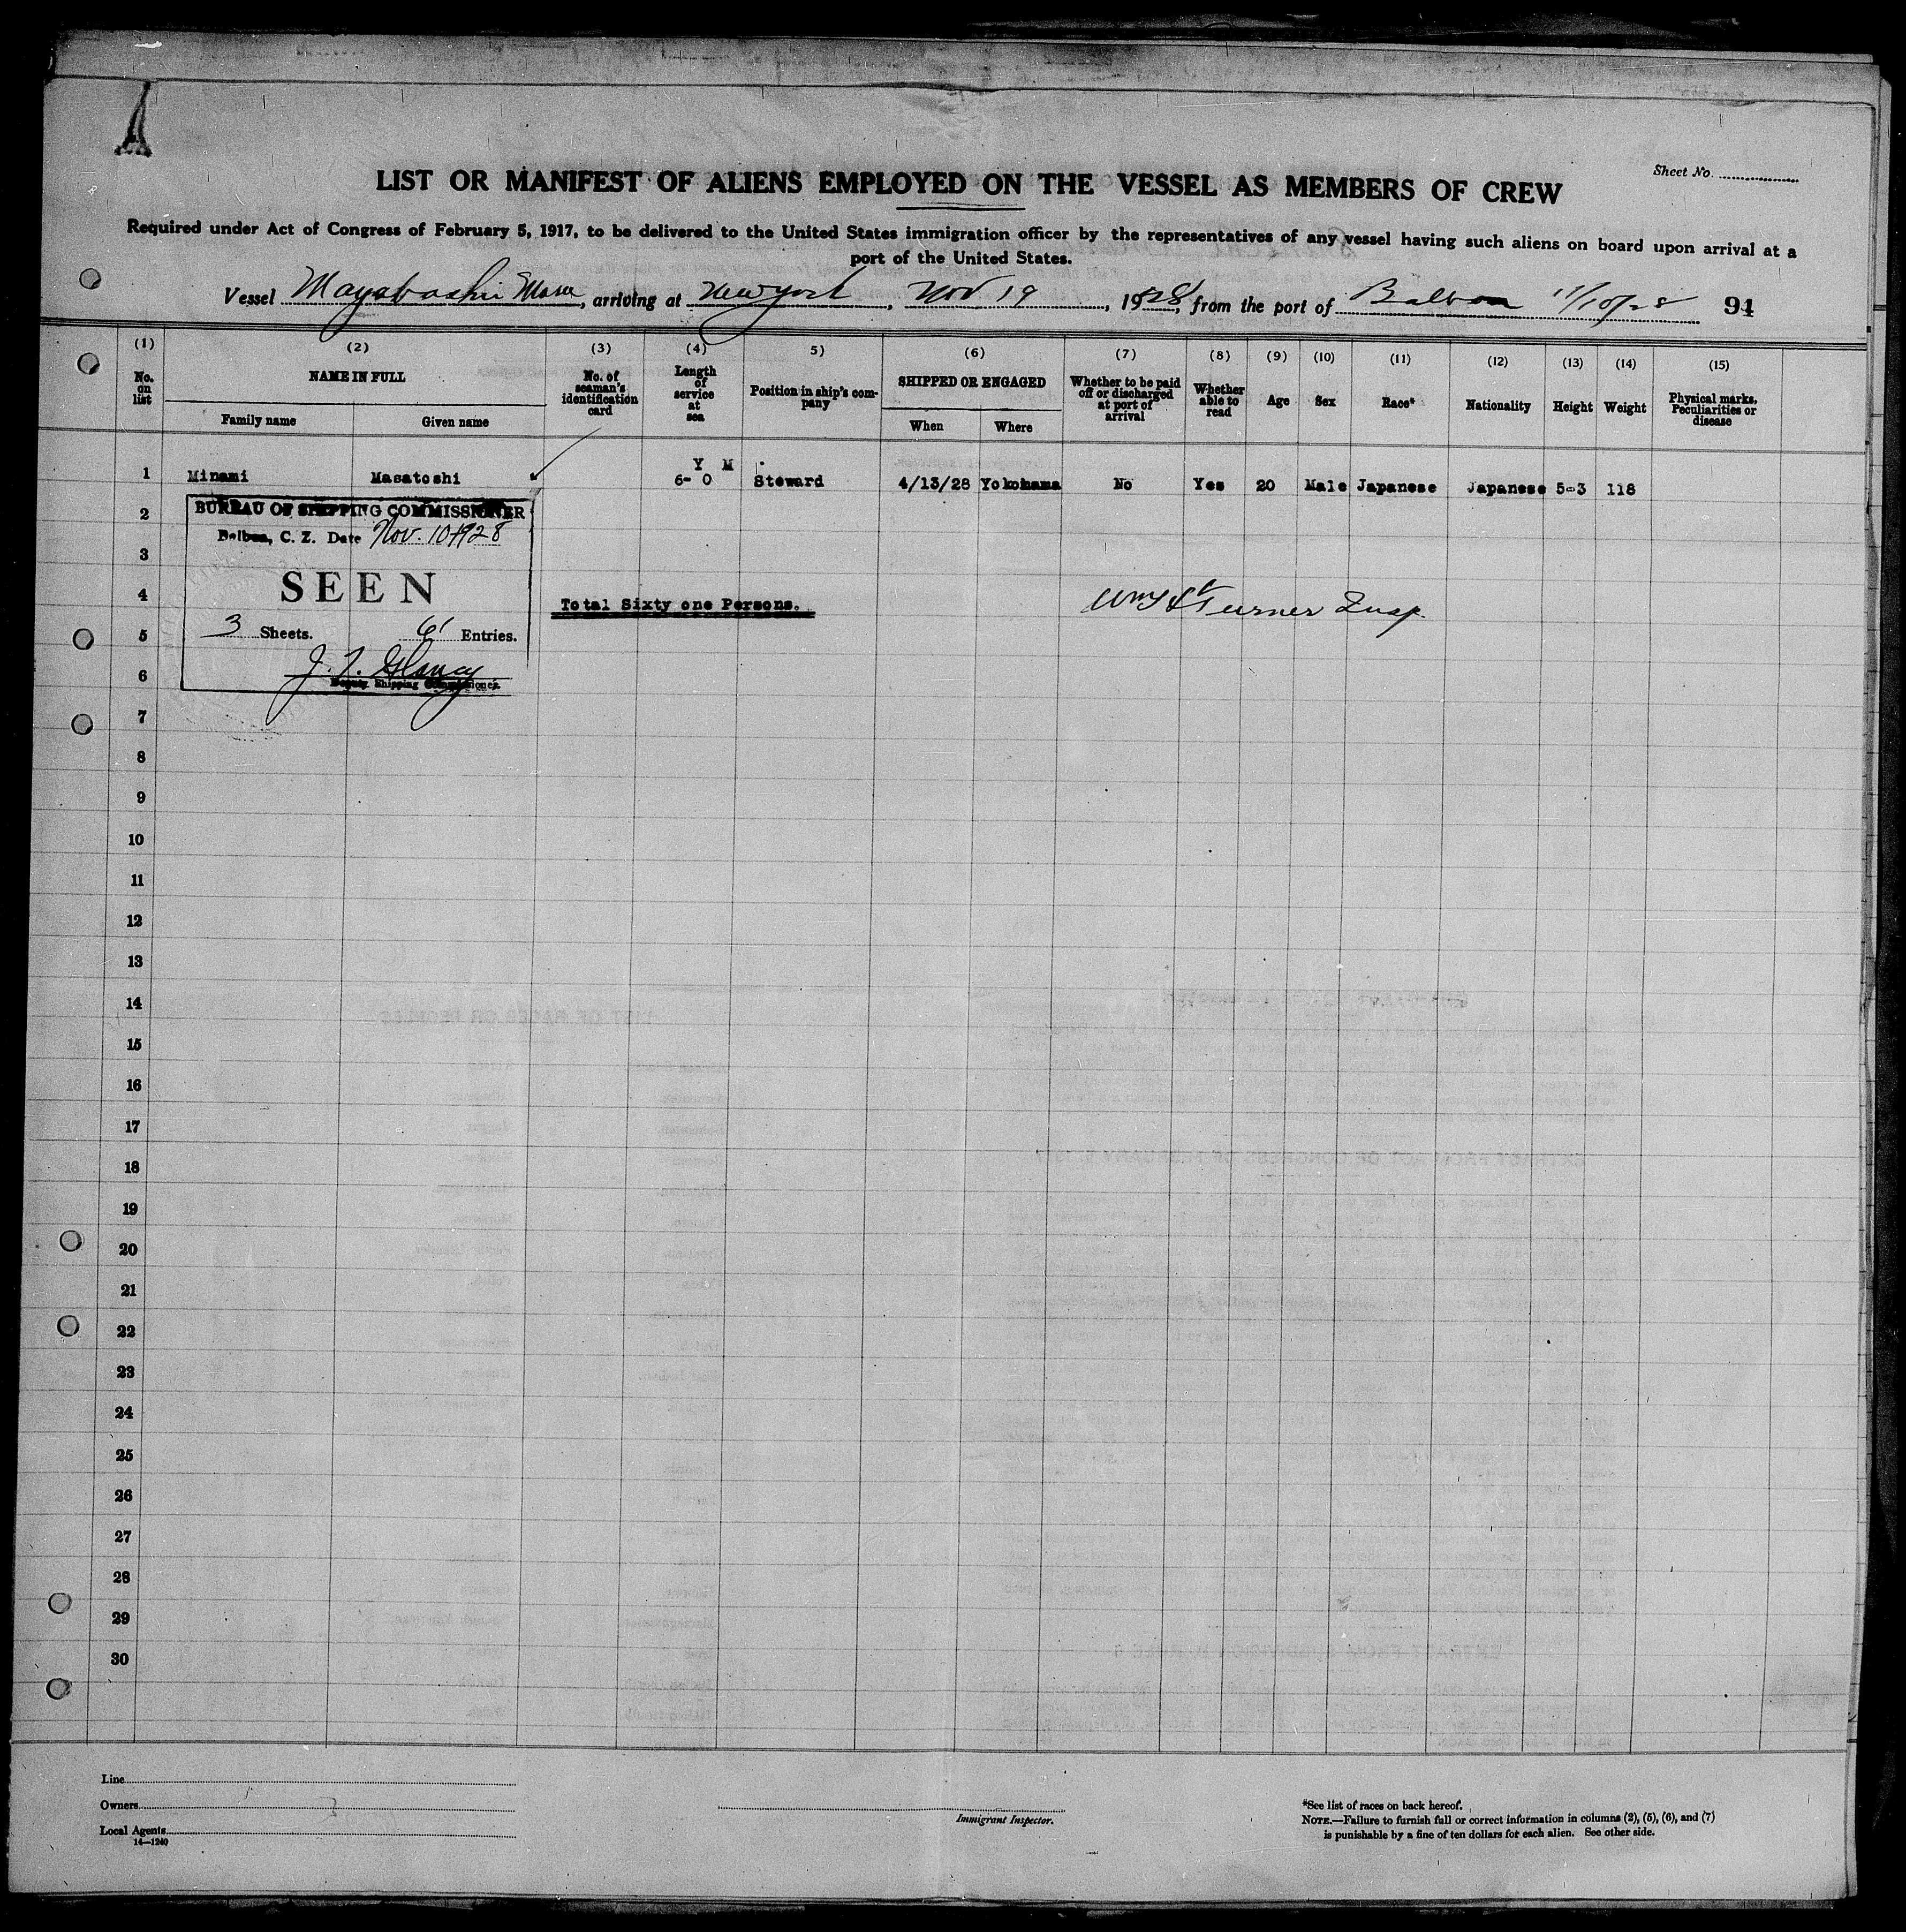 Sheet No.
LIST OR MANIFEST OF ALIENS EMPLOYED ON THE VESSEL AS MEMBERS OF CREW
Required under Act of Congress of February 5, 1917, to be delivered to the United States immigration officer by the representatives of any vessel having such aliens on board upon arrival at a
port of the United States.
Vessel Mayebashi Maru, arriving at New York, Nov 19, 1928, from the port of Balboa 11/10/28 94
(1) (2) (3) (4) 5) (6) (7) (8) (9) (10) (11) (12) (13) (14) (15)
No. on list NAME IN FULL No. of seaman's identification card Length of service at sea Position in ship's company SHIPPED OR ENGAGED Whether to be paid off or discharged at port of arrival Whether able to read Age Sex Race* Nationality Height Weight Physical marks, Peculiarities or disease
Family name Given name When Where
Y M
1 Minami Masatoshi 6- 0 Steward 4/13/28 Yokohama No Yes 20 Male Japanese Japanese 5-3 118
BUREAU OF SHIPPING COMMISSIONER
2
Balboa, C. Z. Date Nov. 10 1928
3
SEEN
4 Total Sixty one Persons. Turner Insp.
5 3 Sheets. 61 Entries.
J.
6 Deputy Shipping Commissioner.
7
8
9
10
11
12
13
14
15
16
17
18
19
20
21
22
23
24
25
26
27
28
29
30
Line
Owners
Local Agents
14—1240
Immigrant Inspector.
*See list of races on back hereof.
NOTE.—Failure to furnish full or correct information in columns (2), (5), (6), and (7)
is punishable by a fine of ten dollars for each alien. See other side.